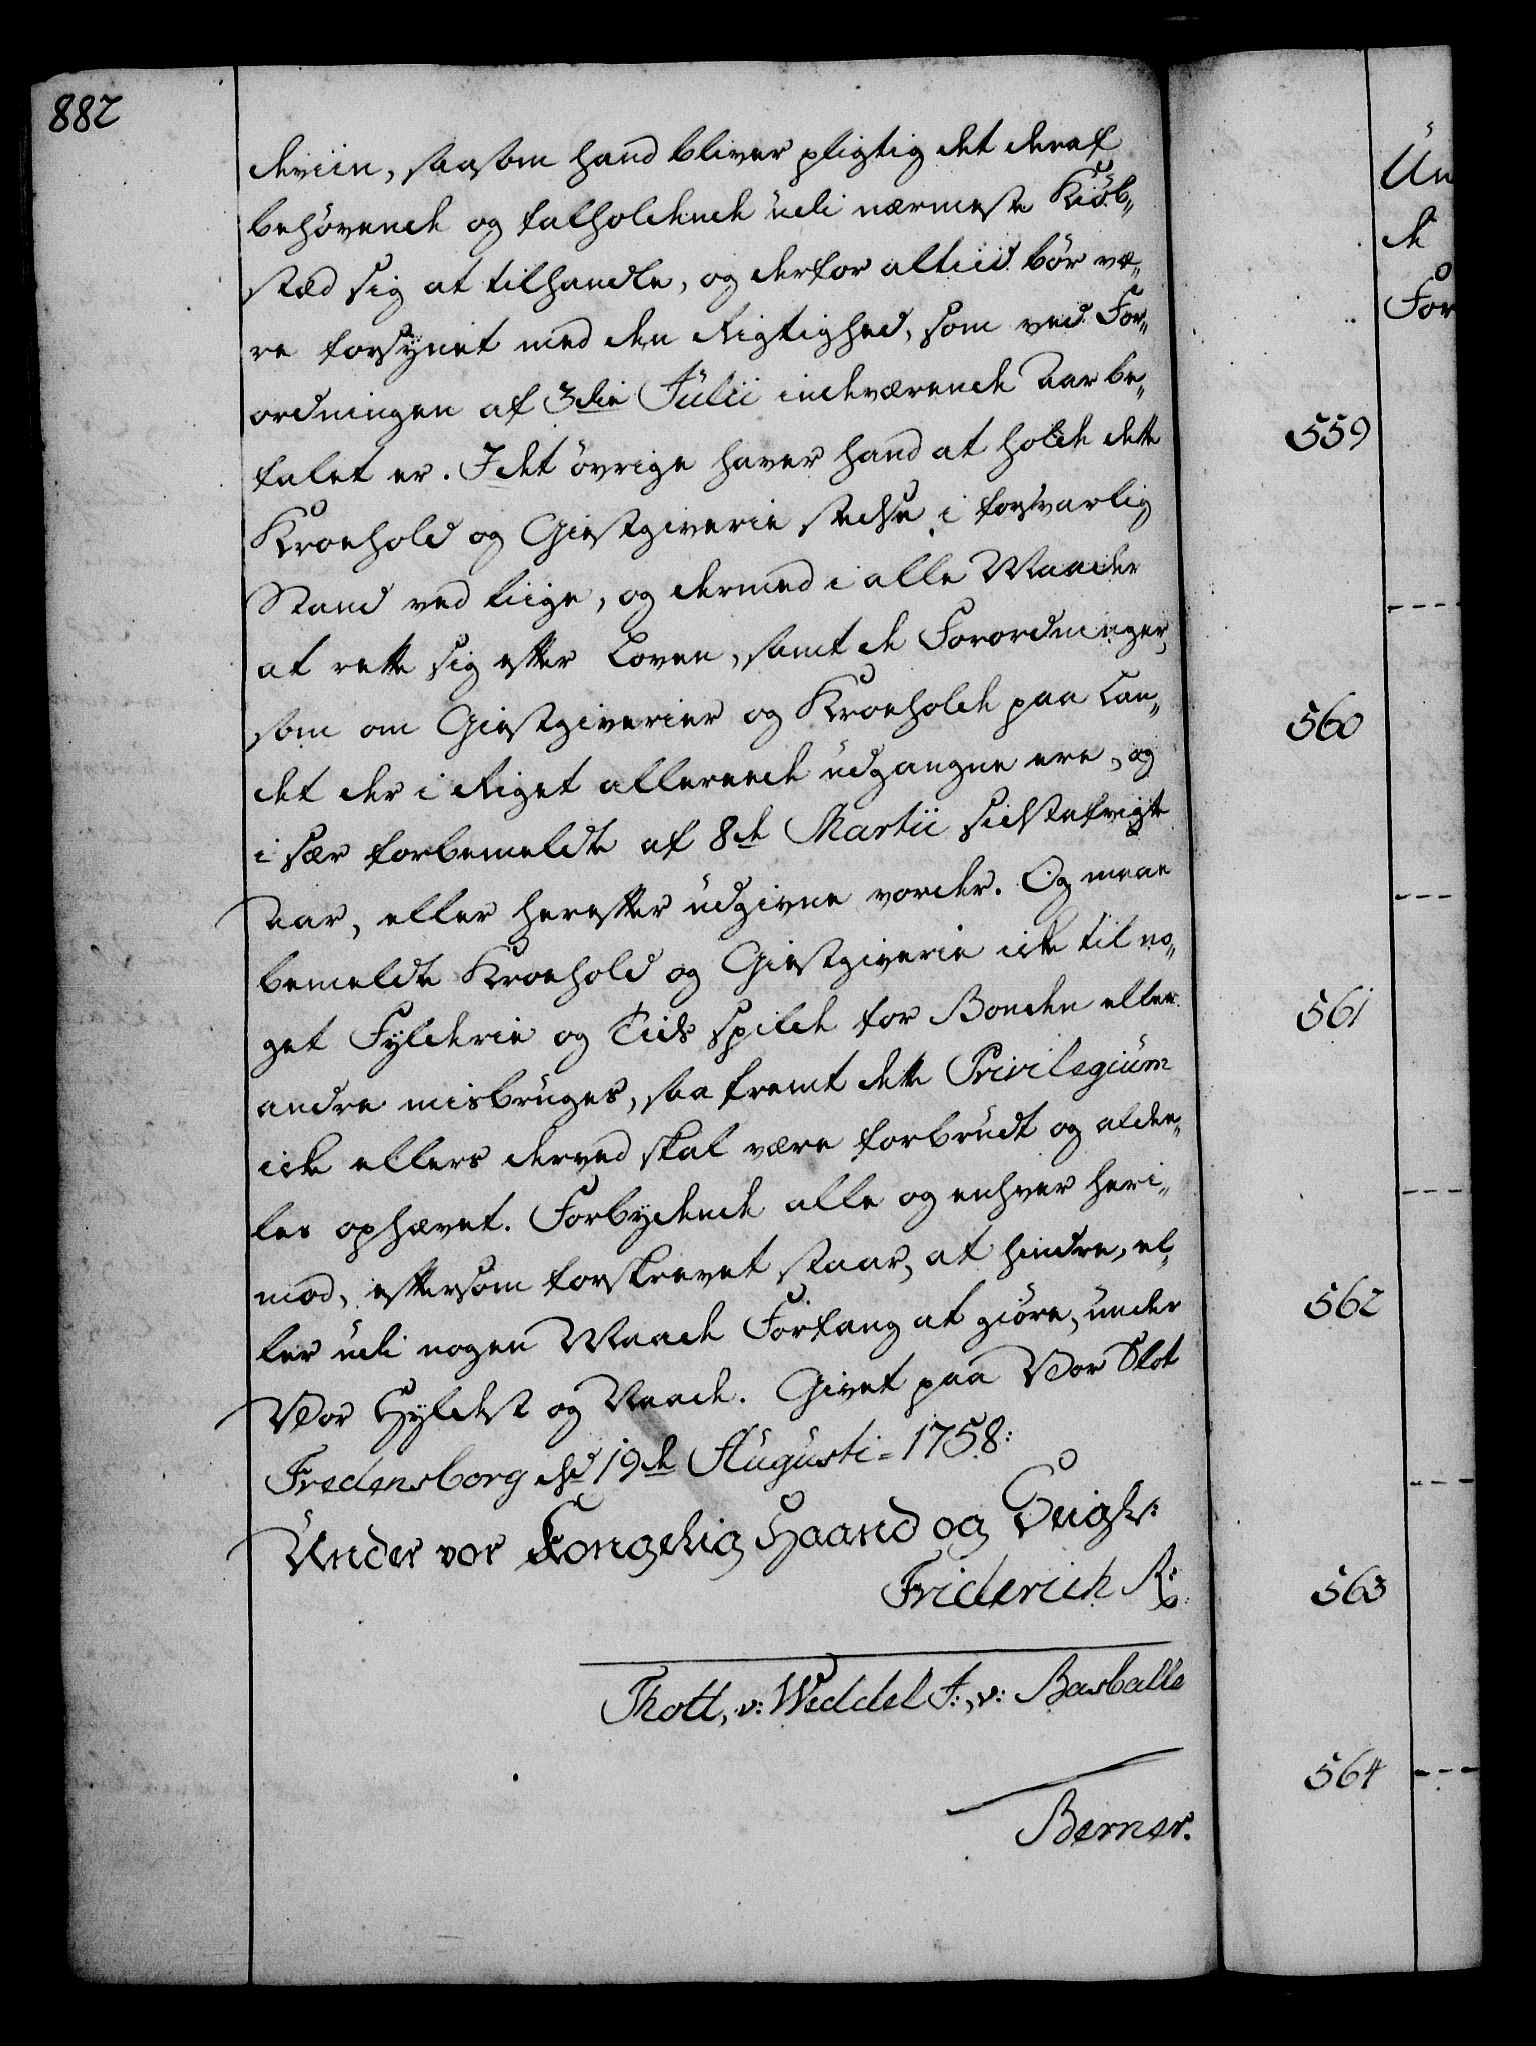 882
deviin, saasom hand bliver pligtig det deraf
behøvende og falholdende udi nærmeste Kiøb„
stæd sig at tilhandle, og derfor altiid bør væ„
re forsynet med den Rigtighed, som ved For„
ordningen af 3die Julii indeværende Aar be„
falet er. I det øvrige haver hand at holde dette
Kroehold og Giestgiverie stedse i forsvarlig
Stand ved liige, og dermed i alle Maader
at rette sig efter Loven, samt de Forordninger,
som om Giestgiverier og Kroeholde paa Lan„
det der i Riget allereede udgangne ere, og
i sær forbemeldte af 8de Martii sidstafvigte
Aar, eller herefter udgivne vorder. Og maae
bemeldte Kroehold og Giestgiverie icke til no„
get Fylderie og Tids spilde for Bonden eller
andre misbruges, saa fremt dette Privilegium
icke ellers derved skal være forbrudt og aldee„
les ophævet. Forbydende alle og enhver heri„
mod, eftersom forskrevet staar, at hindre, el„
ler udi nogen Maade Forfang at giøre, under
Vor Hyldest og Naade. Givet paa Vor Slot
Fredensborg dhd 19de Augusti = 1758:
Under vor Kongelig Haand og Seigl:
Friderich R:
Thott, v: Weddel F:, v: Basballe
Berner.
559
560
561
562
563
564
Un
de
For